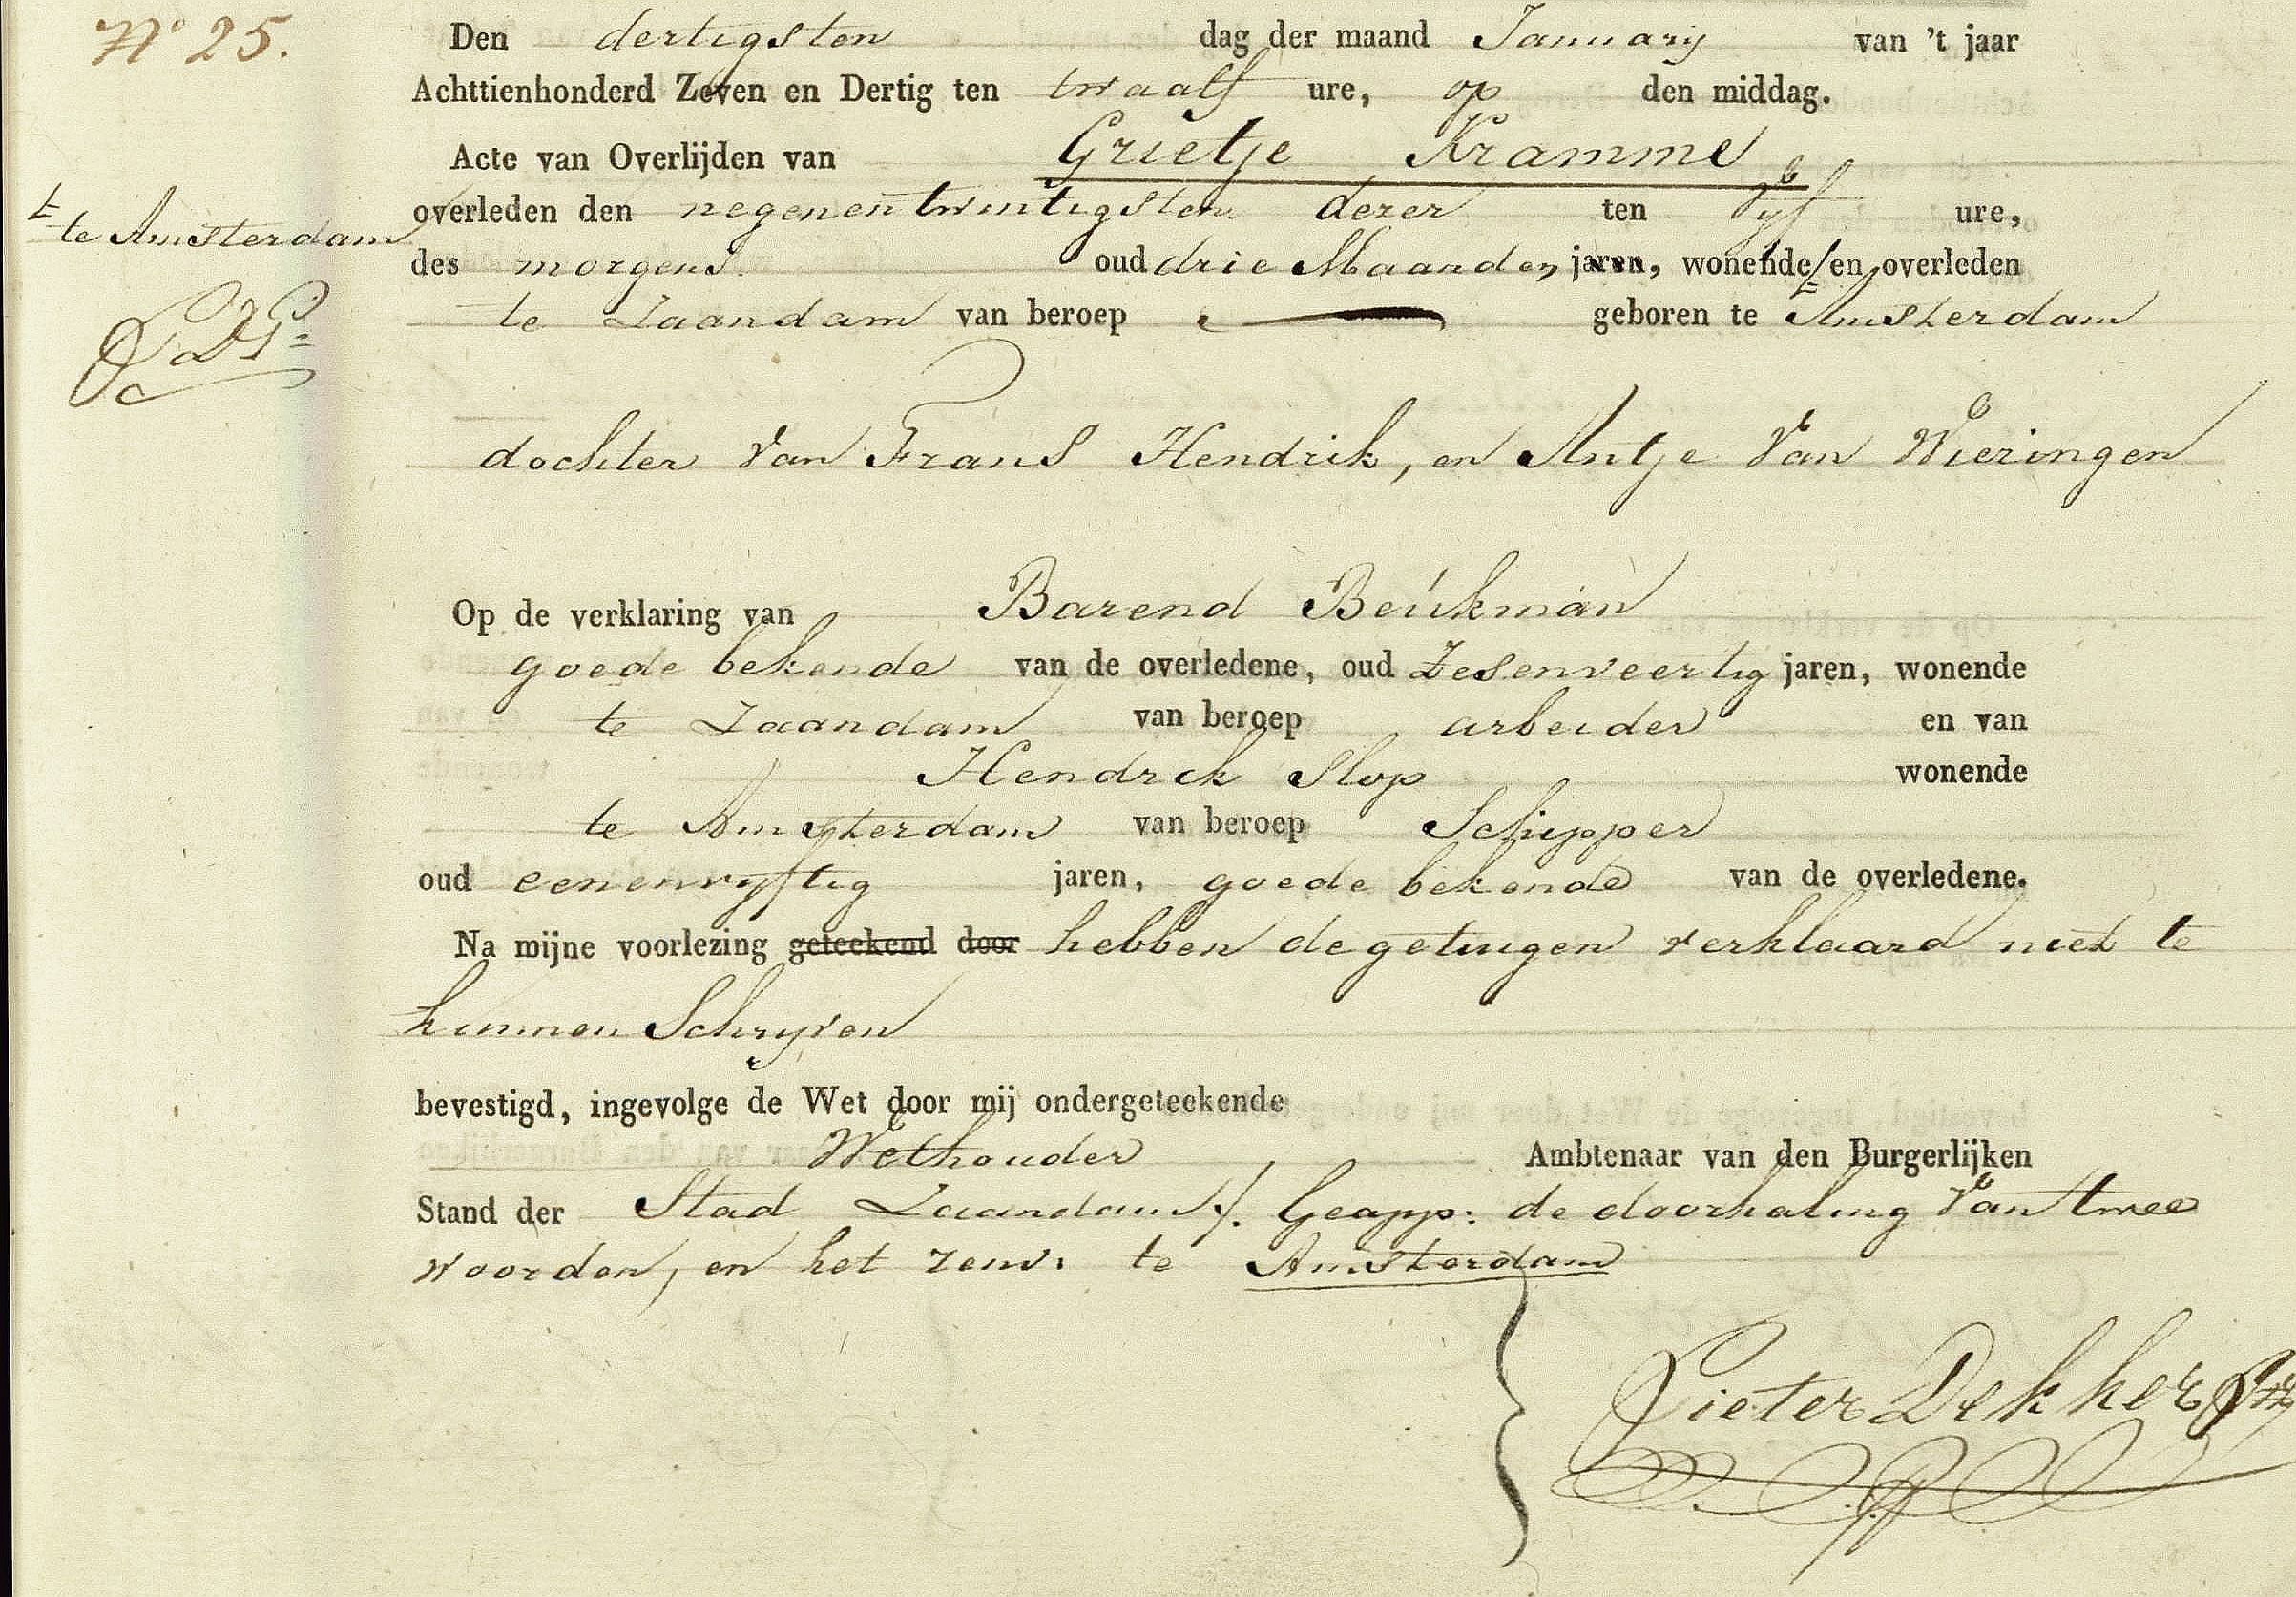 No 25.
Den dertigsten dag der maand January van 't jaar
Achttienhonderd Zeven en Dertig ten twaalf ure, op den middag.
Acte van Overlijden van Grietje Kramme
overleden den negenentwintigsten dezer ten Vyf ure,
te Amsterdam
des morgens. oud drie Maanden jaren, wonende en overleden
te Zaandam van beroep geboren te Amsterdam
dochter van Frans Hendrik, en Antje Van Wieringen
Op de verklaring van Barend Beúkman
goede bekende van de overledene, oud Zesenveertig jaren, wonende
te Zaandam van beroep arbeider en van
Hendrik Slop wonende
te Amsterdam van beroep Schipper
oud eenenvyftig jaren, goede bekende van de overledene.
Na mijne voorlezing geteekend door hebben de getuigen verklaard niet te
kunnen Schryven
bevestigd, ingevolge de Wet door mij ondergeteekende
Wethouder Ambtenaar van den Burgerlijken
Stand der Stad Zaandam /. Geapp: de doorhaling Van twee
woorden, en het renv. te Amsterdam
Pieter Dekker